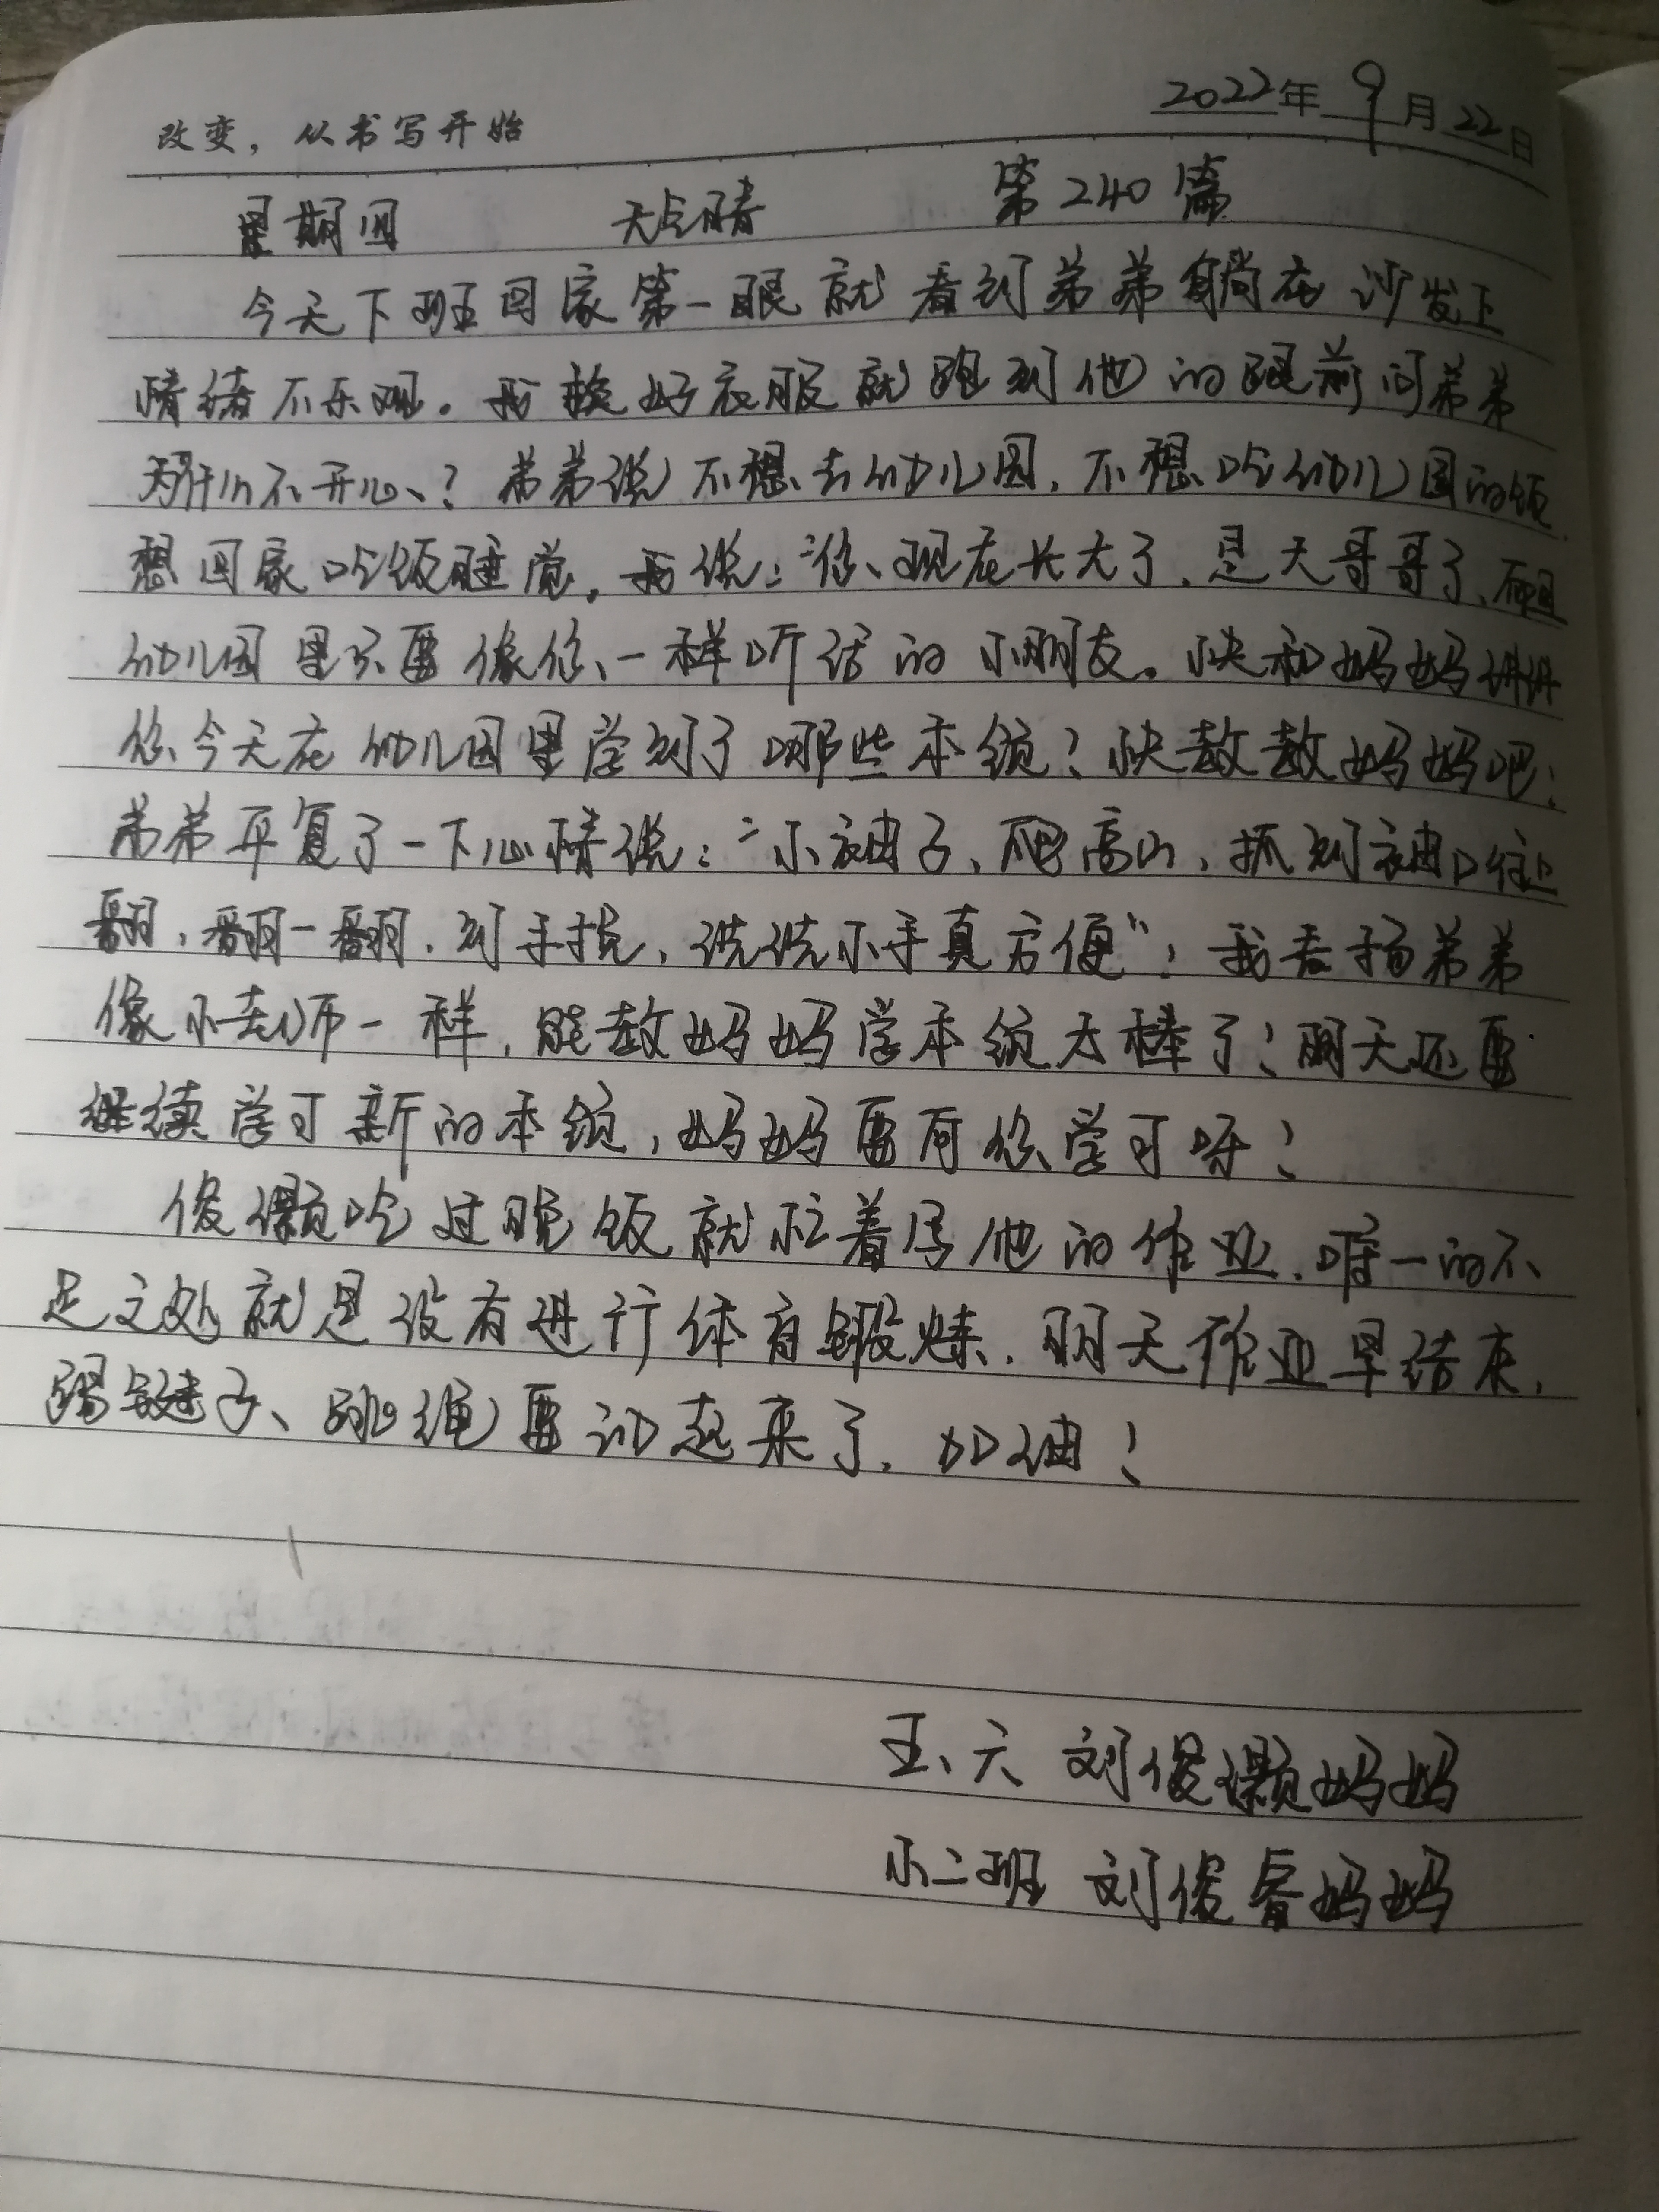 2022年9月22日
改变，从书写开始
星期四 天气晴 第240篇
今天下班回家第一眼就看到弟弟躺在沙发上
情绪不乐观。我换好衣服就跑到他的跟前问弟弟
为什么不开心？弟弟说不想去幼儿园，不想吃幼儿园的饭
想回家吃饭睡觉。我说：“你现在长大了，是大哥哥了，而且
幼儿园里只要像你一样听话的小朋友。快和妈妈讲讲
你今天在幼儿园里学到了哪些本领？快教教妈妈吧！
弟弟平复了一下心情说：“小袖子，爬高山，抓到袖口往上
翻，翻一翻，到手挽，洗洗小手真方便”！我表扬弟弟
像小老师一样，能教妈妈学本领太棒了！明天还要
继续学习新的本领，妈妈要向你学习呀！
俊灏吃过晚饭就忙着写他的作业，唯一的不
足之处就是没有进行体育锻炼，明天作业早结束，
踢毽子、跳绳要训起来了，加油！
五、六 刘俊灏妈妈
小二班 刘俊睿妈妈